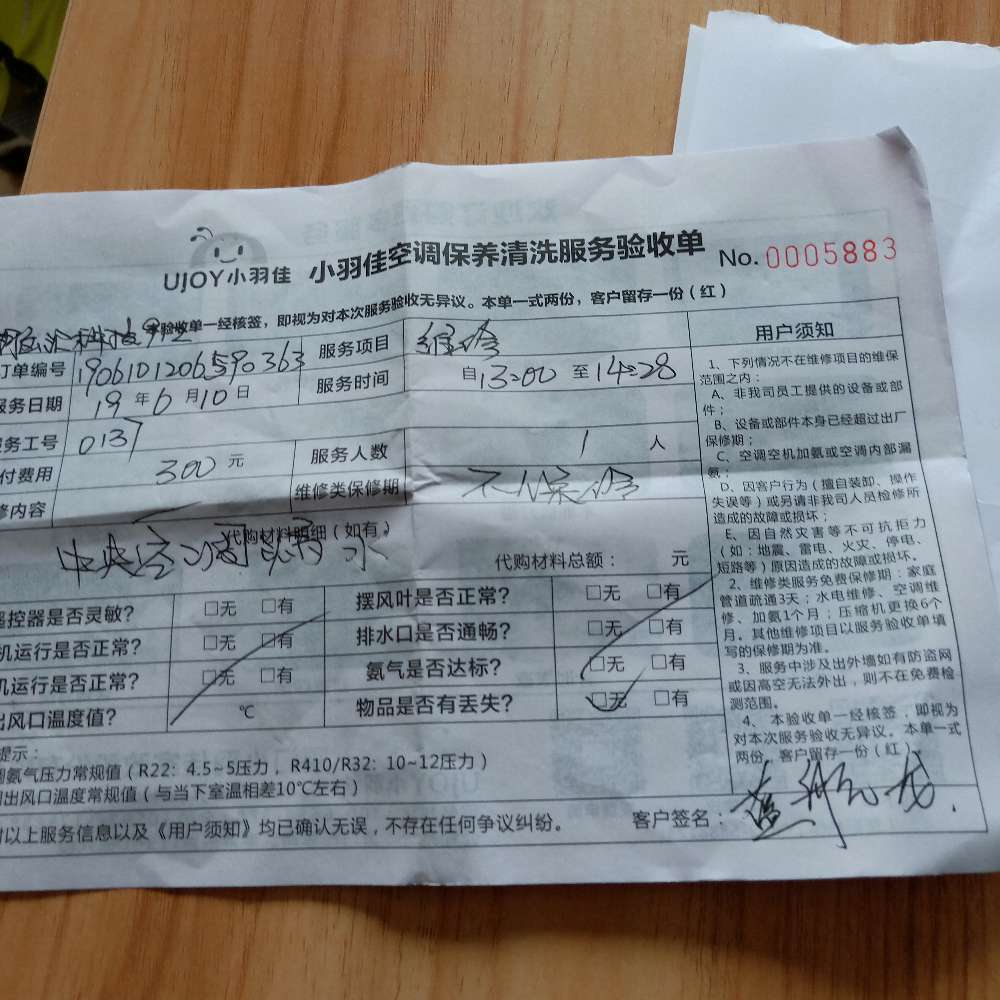 UJOY小羽佳 小羽佳空调保养清洗服务验收单 No. 0005883
验收单一经核签，即视为对本次服务验收无异议。本单一式两份，客户留存一份（红）
订单编号 1906101206590363 服务项目 维修
服务日期 19 年 6 月 10 日 服务时间 自 13:00 至 14:28
服务工号 0137
付费用 300 元 服务人数 1 人
修内容 维修类保修期 不保修
代购材料明细（如有）
中央空调漏水 代购材料总额： 元
控器是否灵敏？ □无 □有 摆风叶是否正常？ □无 □有
机运行是否正常？ □无 □有 排水口是否通畅？ □无 □有
机运行是否正常？ □无 □有 氨气是否达标？ □无 □有
出风口温度值？ ℃ 物品是否有丢失？ □无 □有
提示：
氨气压力常规值（R22：4.5~5压力，R410/R32：10~12压力）
出风口温度常规值（与当下室温相差10℃左右）
以上服务信息以及《用户须知》均已确认无误，不存在任何争议纠纷。 客户签名：
用户须知
1、下列情况不在维修项目的维保
范围之内：
A、非我司员工提供的设备或部
件；
B、设备或部件本身已经超过出厂
保修期；
C、空调空机加氨或空调内部漏
氨；
D、因客户行为（擅自装卸、操作
失误等）或另请非我司人员检修所
造成的故障或损坏；
E、因自然灾害等不可抗拒力
（如：地震、雷电、火灾、停电、
短路等）原因造成的故障或损坏。
2、维修类服务免费保修期：家庭
管道疏通3天；水电维修、空调维
修、加氨1个月；压缩机更换6个
月。其他维修项目以服务验收单填
写的保修期为准。
3、服务中涉及出外墙如有防盗网
或因高空无法外出，则不在免费检
测范围。
4、本验收单一经核签，即视为
对本次服务验收无异议。本单一式
两份，客户留存一份（红）